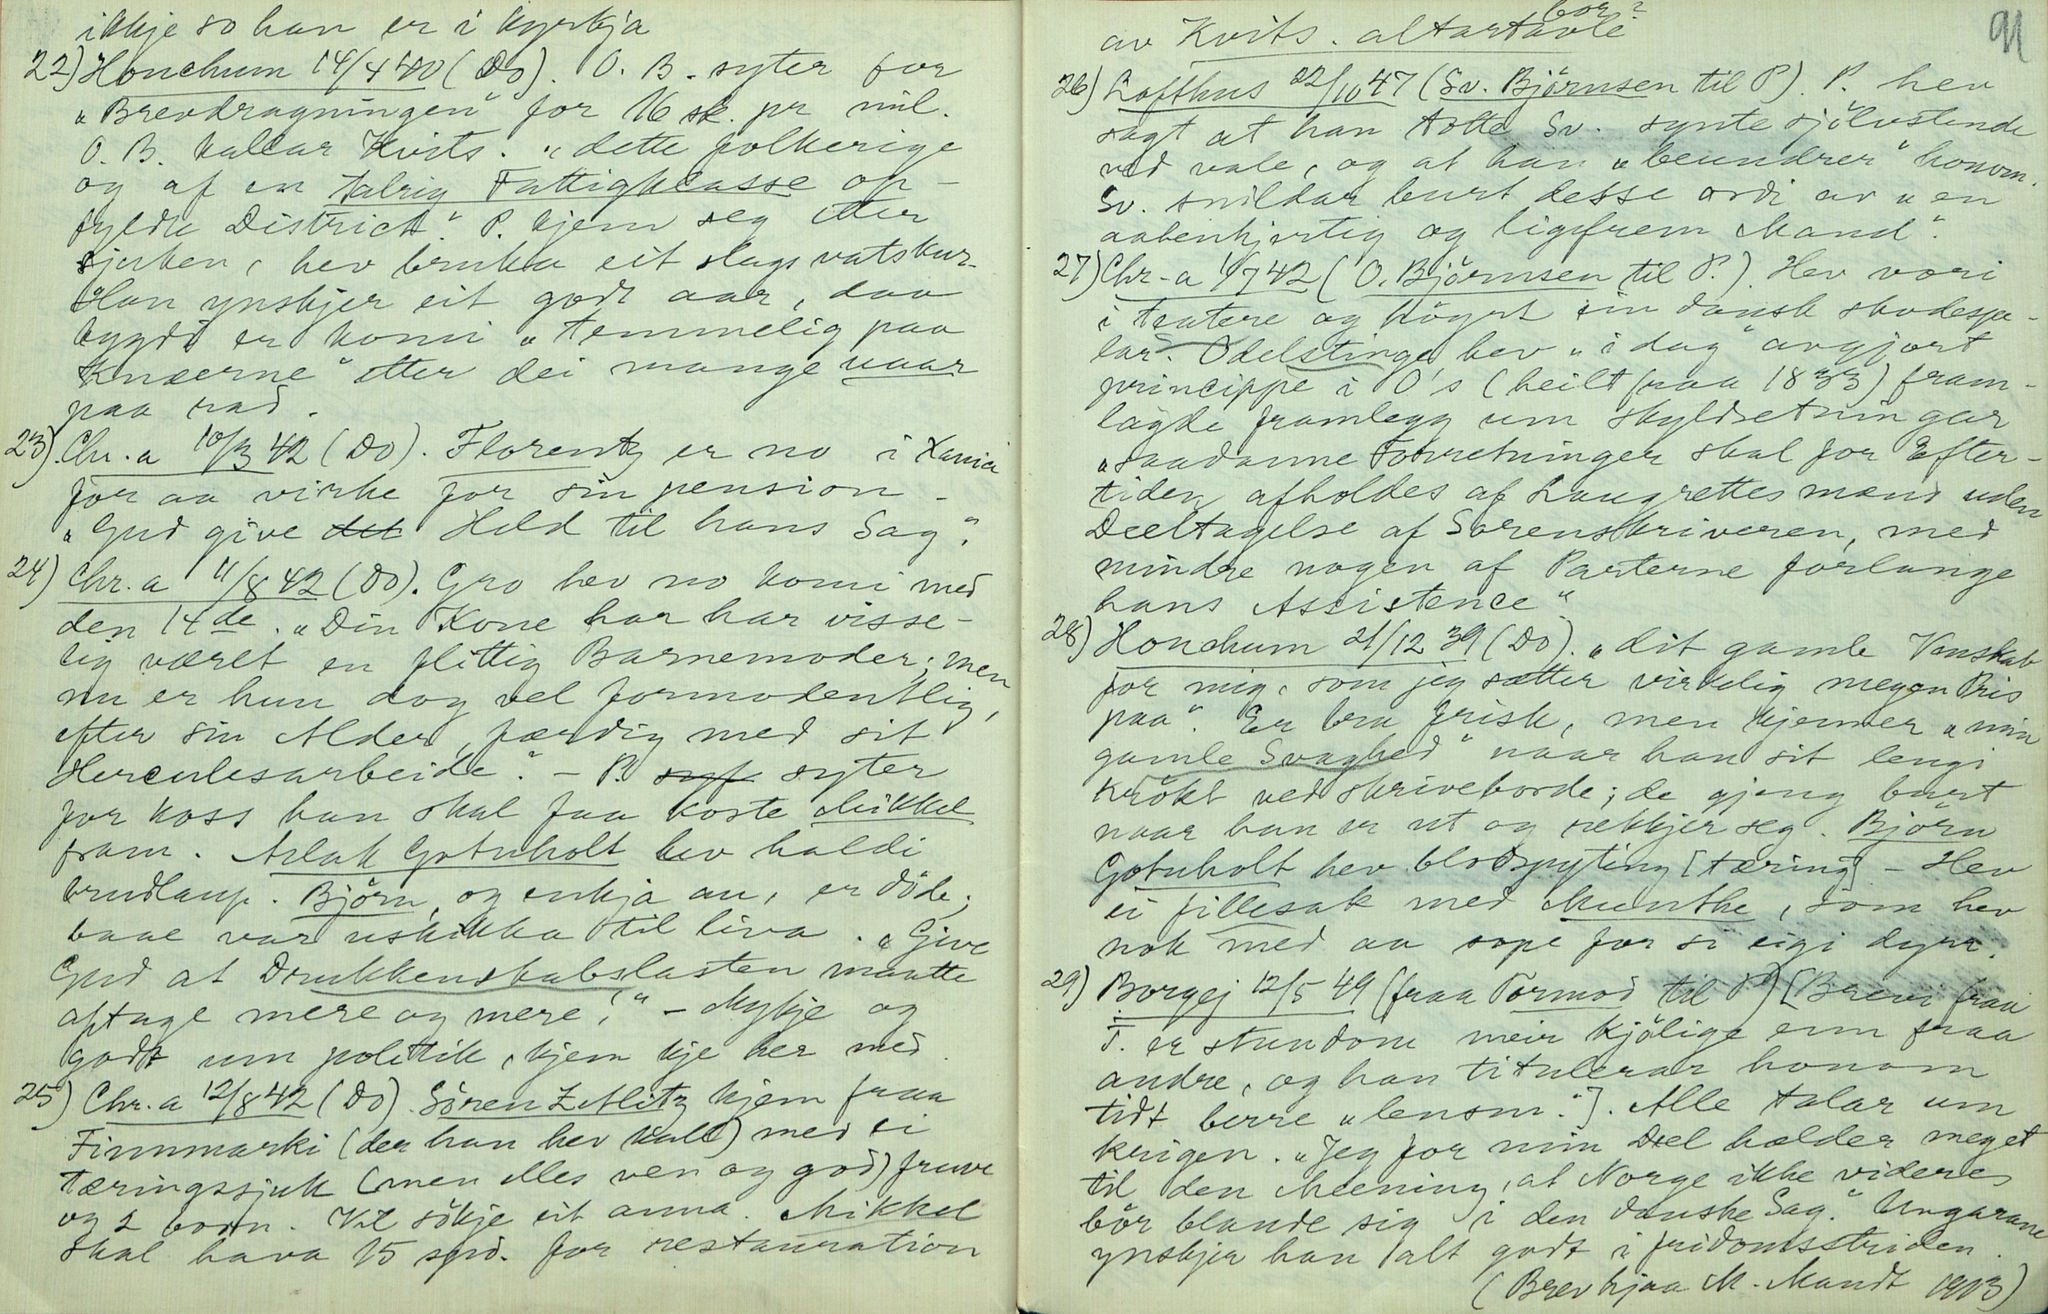 ikkje so han er i kyrkja
22) Honchum 14/4 40 (Do). O. B. syter for
"Brevdragningen" for 16 sk. pr mil.
O. B. kallar Kvits. "dette folkerige
og af en talrig Fattigklasse op-
fyldte District." P. kjem seg etter
sjuken, hev bruka eit slags vatskur.
Han ynskjer eit godt aar, daa
bygdi er komi "temmelig paa
Knæerne" etter dei mange uaar
paa rad.
23) Chr.a 10/3 42 (Do). Florentz er no i Xania
for aa virke for sin pension -
"Gud give det Held til hans Sag".
24) Chr.a 11/8 42 (Do). Gro hev no komi med
den 14de. "Din Kone har har visse-
lig været en flittig Barnemoder; men
nu er hun dog vel formodentlig,
efter sin Alder, færdig med sit
Herculesarbeide." - P. syter
for koss han skal faa koste Mikkel
fram. Aslak Gotuholt hev haldi
brudlaup. Björn, og enkja an, er döde;
baae var uskikka til liva. "Give
Gud at Drukkenskabslasten maatte
aftage mere og mere!" - Mykje og
godt um politik, kjem kje her med.
25) Chr.a 12/8 42 (Do). Sören Zetlitz kjem fraa
Finnmarki (der han hev kall) med ei
tæringssjuk (men elles ven og god) fruve
og 2 born. Vil sökje eit anna. Mikkel
skal hava 15 spd. for restauration
av Kvits. altartavle
bor?
91
26) Lofthus 22/10 47 (Sv. Björnsen til P). P. hev
sagt at han totte Sv. synte sjölvstende
ved vale, og at han "beundrer" honom.
Sv. snildar burt desse ordi av "en
aabenhjertig og ligefrem Mand".
27) Chr-a 1/7 42 (O. Björnsen til P.). Hev vori
i teatere og högrt ein dansk skodespe-
lar. Odelstinge hev "i dag" avgjort
princippe i O's (heilt fraa 1833) fram-
lagde framlegg um skyldsetningar
"saadanne Forretninger skal for Efter-
tiden afholdes af Laugrettesmænd uden
Deeltagelse af Sorenskriveren, med
mindre nogen af Parterne forlange
hans Assistence"
28) Honchum 21/12 39 (Do). "dit gamle Venskab
for mig, som jeg sætter virkelig megen Pris
paa". Er bra frisk, men kjenner "min
gamle Svaghed" naar han sit lengi
krökt ved skriveborde; de gjeng burt
naar han er ut og rekkjer seg. Björn
Gotuholt hev blodspyting [tæring] - Hev
ei fillesak med Munthe, som hev
nok med aa sope for si eigi dyrr.
29) Borgej 12/5 49 (fraa Tormod til P) [Brevi fraa
T. er stundom meir kjölige enn fraa
andre, og han titulerar honom
tidt berre "lensm."]. Alle talar um
krigen. "Jeg for min Deel hælder meget
til den Meening, at Norge ikke videre
bör blande sig i den danske Sag." Ungarane
ynskjer han alt godt i fridomsstriden.
(Brev hjaa M. Mandt 1913)